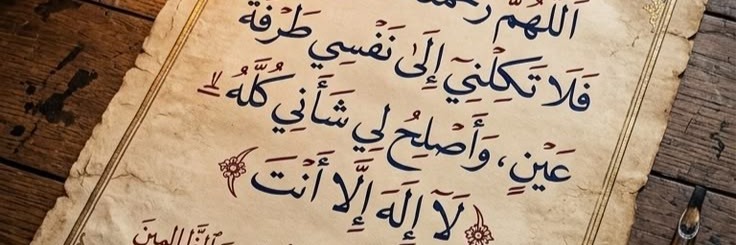 اَللّٰهُمَّ
فَلَا تَكِلْنِيٓ إِلَىٰ نَفْسِي طَرْفَةَ
عَيْنٍ، وَأَصْلِحُ لِي شَأَنِي كُلَّهُ لا
﴿لَآ إِلَهَ إِلَّا أَنْتَ﴾